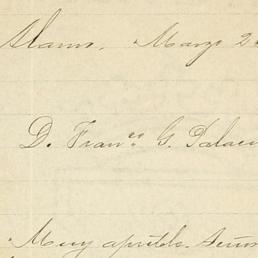 Alamos, Marzo 2
D. Fran.co G. Palac
Muy apreble. Señor